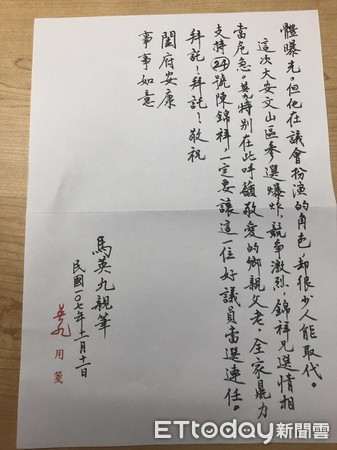 體曝光。但他在議會扮演的角色卻很少人能取代。
這次大安文山區參選爆炸，競爭激烈，錦祥兄選情相
當危急。英九特別在此呼籲敬愛的鄉親父老，全家鼎力
支持24號陳錦祥，一定要讓這一位好議員當選連任。
拜託！拜託！敬祝
闔府安康
事事如意
馬英九親筆
民國一〇七年十一月十二日
英九 用箋
ETtoday新聞雲